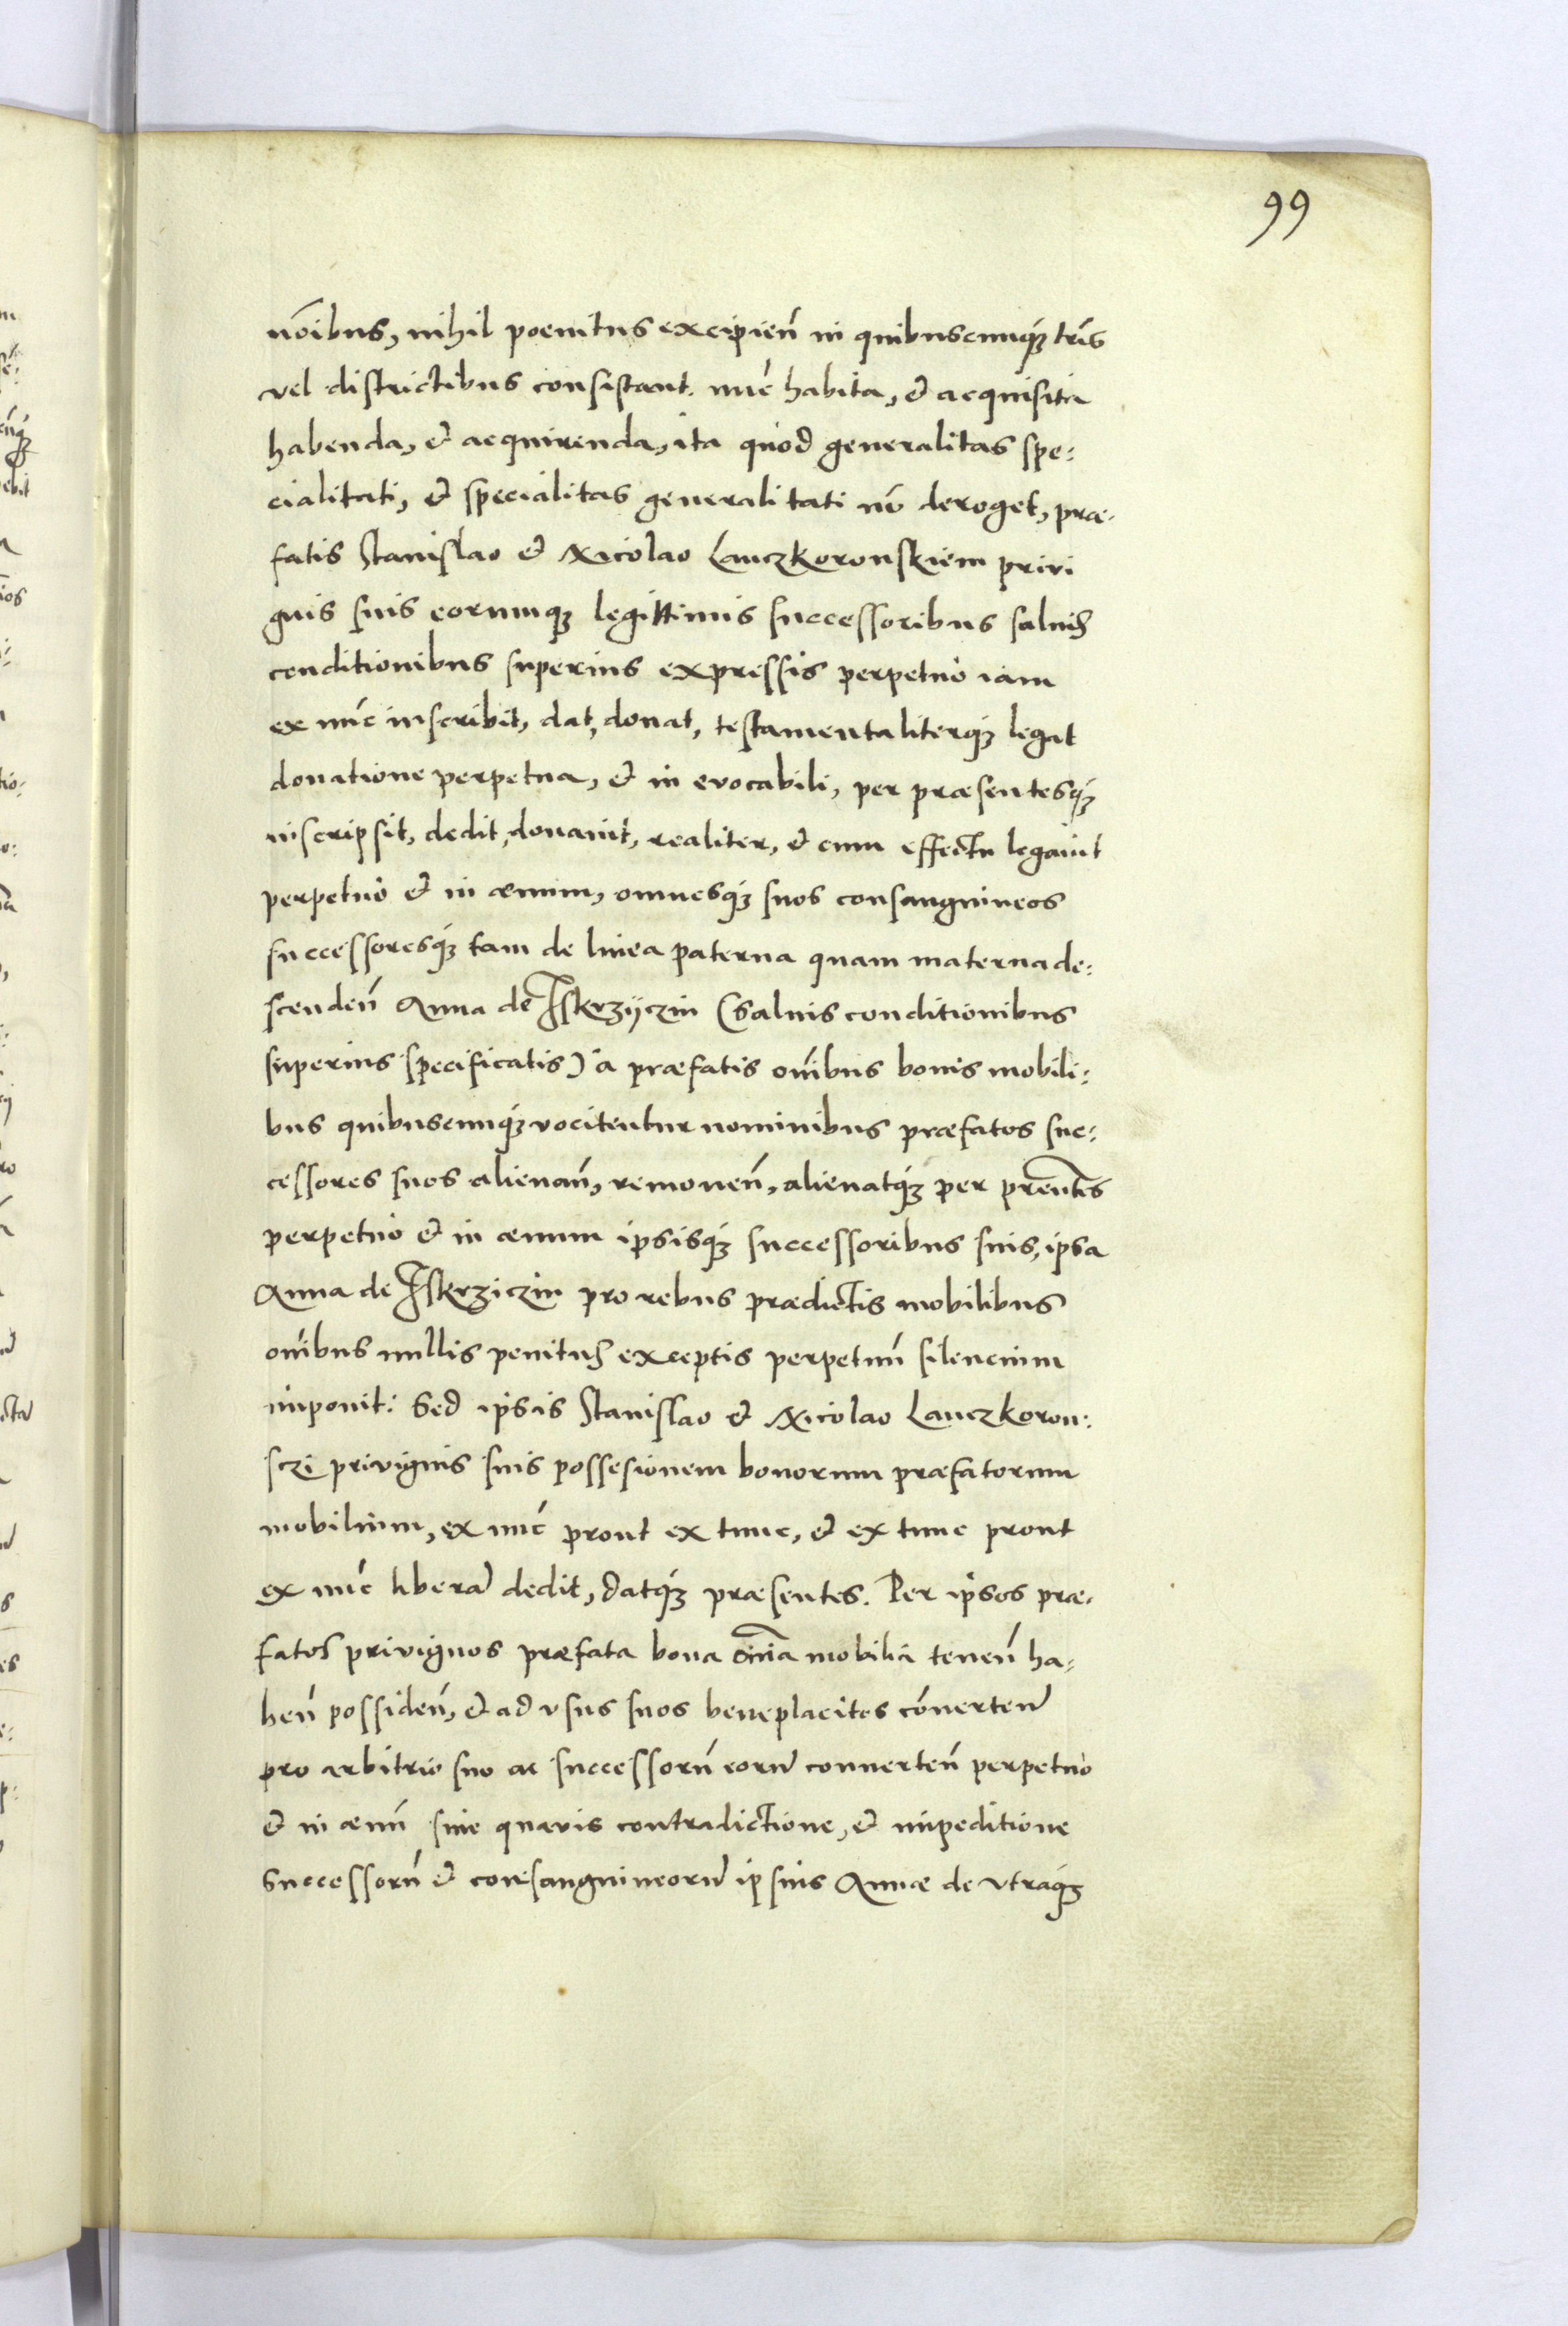 99
nōibus, nihil poenitus excipień in quibuscunq́ꝫ tr̃is
vel districtibus consistant. nuńc habita, et acquisita
habenda, et acquirenda, ita quod generalitas spe:
cialitati, et specialitas generalitati nō deroget, præ.
fatis Stanislao et Nicolao Lanczkoronskiem privi
gnis suis eorumqꝫ legittimis successoribus saluis
conditionibus superius expressis perpetuò iam
ex nuńc inscribit, dat, donat, testamentaliterqꝫ legat
donatione perpetua, et in evocabili, per præsentesq́ꝫ
inscripsit, dedit, donauit, realiter, et cum effectu legauit
perpetuò et in æuum, omnesq́ꝫ suos consanguineos
successoresq́ꝫ tam de linea paterna quam materna de:
scendeń Anna de Iskrzyczin (saluis conditionibus
superius specificatis) à præfatis ońibus bonis mobili:
bus quibuscunq́ꝫ vocitentur nominibus præfatos suc:
cessores suos alienań, remoueń, alienatq́ꝫ per pr̃entes
perpetuò et in æuum ipsisq́ꝫ successoribus suis, ipsa
Anna de Iskrziczin pro rebus prædictis mobilibus
ońibus nullis penitus exceptis perpetuū silencium
imponit: Sed ipsis Stanislao et Nicolao Lanczkoron:
sczi privignis suis possesionem bonorum præfatorum
mobilium, ex nuńc prout ex tunc, et ex tunc prout
ex nuńc liberā dedit, datq́ꝫ præsentes. Per ipsos præ.
fatos privignos præfata bona om̃ia mobilia teneń ha:
beń possideń, et ad vsus suos beneplacitos cōuerteń
pro arbitrio suo ac successorū eorū conuerteń perpetuò
et in æuū sine quavis contradictione, et impeditione
successorū et consanguineorū ipsius Annæ de vtraq́ꝫ